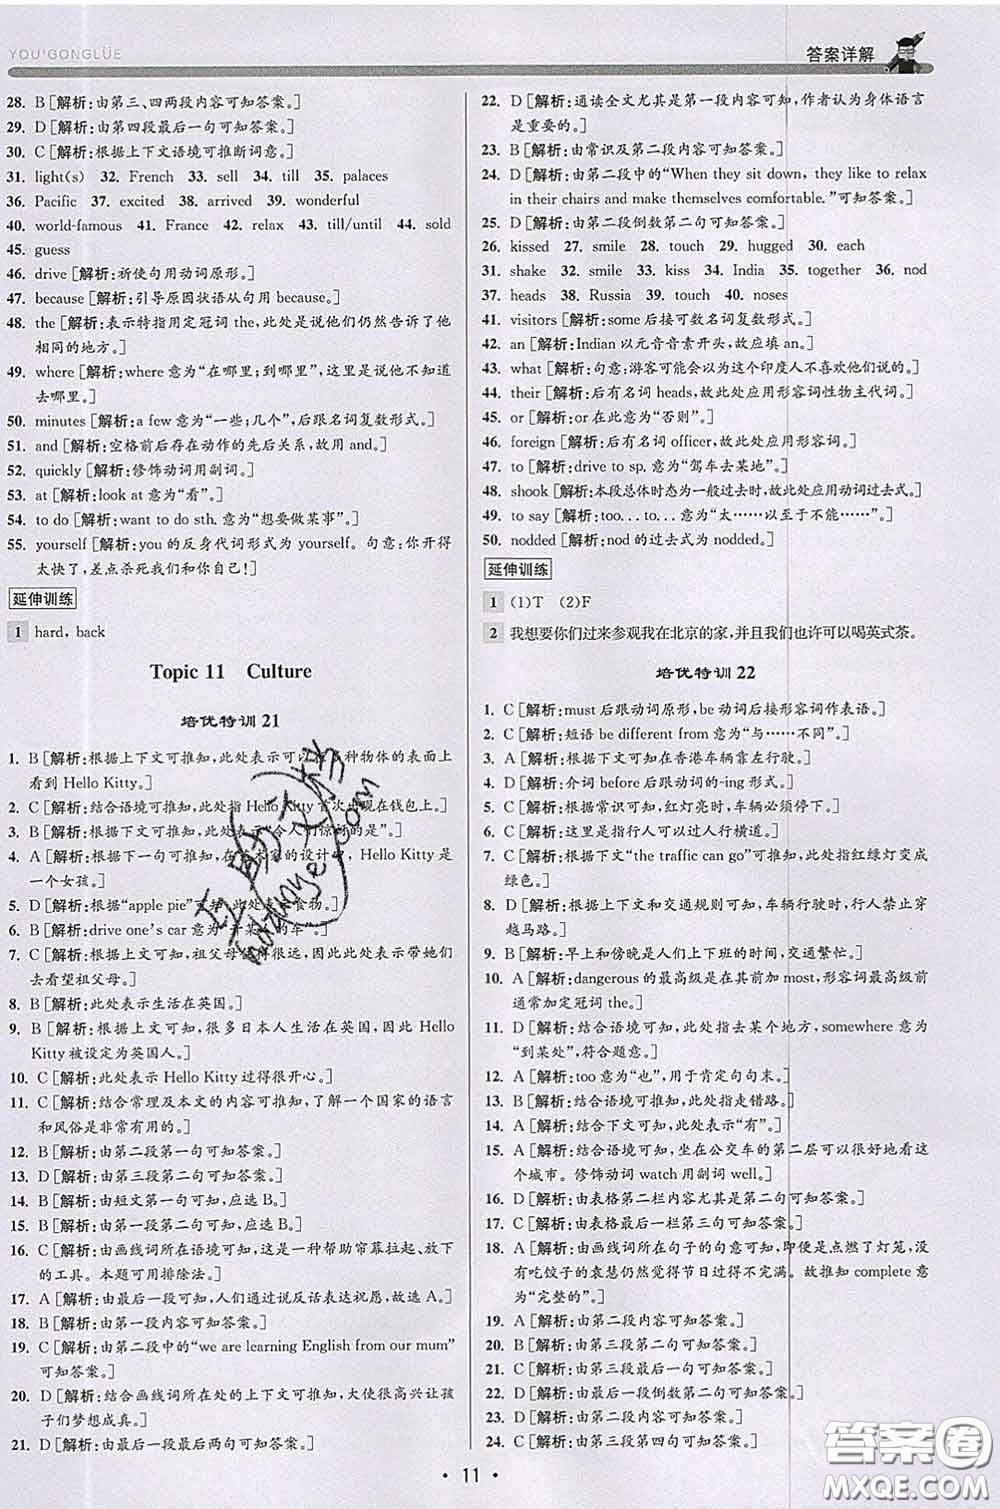 YOU'GONGLÜE
答案详解
28. B[解析:由第三、四两段内容可知答案。]
29. D[解析:由第四段最后一句可知答案。]
30. C[解析:根据上下文语境可推断词意。]
31. light(s) 32. French 33. sell 34. till 35. palaces
36. Pacific 37. excited 38. arrived 39. wonderful
40. world-famous 41. France 42. relax 43. till/until 44. sold
45. guess
46. drive[解析:祈使句用动词原形。]
47. because[解析:引导原因状语从句用 because。]
48. the[解析:表示特指用定冠词 the,此处是说他们仍然告诉了他
相同的地方。]
49. where[解析:where 意为“在哪里;到哪里”,这里是说他不知道
去哪里。]
50. minutes[解析:a few 意为“一些;几个”,后跟名词复数形式。]
51. and[解析:空格前后存在动作的先后关系,故用 and。]
52. quickly[解析:修饰动词用副词。]
53. at[解析:look at 意为“看”。]
54. to do[解析:want to do sth. 意为“想要做某事”。]
55. yourself[解析:you 的反身代词形式为 yourself。句意:你开得
太快了,差点杀死我们和你自己!]
延伸训练
1 hard, back
Topic 11 Culture
培优特训 21
1. B[解析:根据上下文可推知,此处表示可以在多种物体的表面上
看到 Hello Kitty。]
2. C[解析:结合语境可推知,此处指 Hello Kitty 首次出现在钱包上。]
3. C[解析:根据下文可推知,此处表示“令人们惊讶的是”。]
4. A[解析:根据下一句可推知,在艺术家的设计中,Hello Kitty 是
一个女孩。]
5. D[解析:根据“apple pie”可推知,此处表示食物。]
6. B[解析:drive one's car 意为“开某人的车”。]
7. C[解析:根据上文可知,祖父母住得很近,此处表示带她们
去看望祖父母。]
8. B[解析:此处表示生活在英国。]
9. B[解析:根据上文可知,很多日本人生活在英国,因此 Hello
Kitty 被设定为英国人。]
10. C[解析:此处表示 Hello Kitty 过得很开心。]
11. C[解析:结合常理及本文的内容可推知,了解一个国家的语言
和风俗是非常有用的。]
12. B[解析:由第二段第一句可知答案。]
13. D[解析:由第三段第二句可知答案。]
14. B[解析:由短文第一句可知,应选 B。]
15. B[解析:由第一段第二句可知答案。]
16. C[解析:由画线词所在语境可知,这是一种帮助帘幕拉起、放下
的工具。本题可用排除法。]
17. A[解析:由最后一段可知,人们通过说反话表达祝愿,故选 A。]
18. B[解析:由第一段内容可知答案。]
19. C[解析:由第二段中的“we are learning English from our mum”
可知答案。]
20. D[解析:结合画线词所在处的上下文可推知,大使很高兴让孩
子们梦想成真。]
21. D[解析:由最后一段最后两句可知答案。]
22. D[解析:通读全文尤其是第一段内容可知,作者认为身体语言
是重要的。]
23. B[解析:由常识及第二段内容可知答案。]
24. D[解析:由第二段中的“When they sit down, they like to relax
in their chairs and make themselves comfortable.”可知答案。]
25. D[解析:由第二段倒数第二句可知答案。]
26. kissed 27. smile 28. touch 29. hugged 30. each
31. shake 32. smile 33. kiss 34. India 35. together 36. nod
37. heads 38. Russia 39. touch 40. noses
41. visitors[解析:some 后接可数名词复数形式。]
42. an[解析:Indian 以元音音素开头,故应填 an。]
43. what[解析:句意:游客可能会以为这个印度人不喜欢他们做的事。]
44. their[解析:后有名词 heads,故此处应用形容词性物主代词。]
45. or[解析:or 在此意为“否则”。]
46. foreign[解析:后有名词 officer,故此处应用形容词。]
47. to[解析:drive to sp. 意为“驾车去某地”。]
48. shook[解析:本段总体时态为一般过去时,故此处应用动词过去式。]
49. to say[解析:too. . . to. . . 意为“太……以至于不能……”。]
50. nodded[解析:nod 的过去式为 nodded。]
延伸训练
1 (1)T (2)F
2 我想要你们过来参观我在北京的家,并且你们也许可以喝英式茶。
培优特训 22
1. C[解析:must 后跟动词原形,be 动词后接形容词作表语。]
2. C[解析:短语 be different from 意为“与……不同”。]
3. A[解析:根据下文可推知在香港车辆靠左行驶。]
4. D[解析:介词 before 后跟动词的-ing 形式。]
5. C[解析:根据常识可知,红灯亮时,车辆必须停下来。]
6. C[解析:这里是指行人可以过人行横道。]
7. C[解析:根据下文“the traffic can go”可推知,此处指红绿灯变成
绿色。]
8. D[解析:根据上下文和交通规则可知,车辆行驶时,行人禁止穿
越马路。]
9. B[解析:早上和傍晚是人们上下班的时间,交通繁忙。]
10. A[解析:dangerous 的最高级是在其前加 most,形容词最高级前
通常加定冠词 the。]
11. D[解析:结合语境可知,此处指去某个地方,somewhere 意为
“到某处”,符合题意。]
12. A[解析:too 意为“也”,用于肯定句句末。]
13. B[解析:结合语境可推知,此处指走错路。]
14. C[解析:结合下文可知,此处表示“有”。]
15. C[解析:结合语境可推知,坐在公交车的第二层可以很好地看
这个城市。修饰动词 watch 用副词 well。]
16. D[解析:由表格第二栏内容尤其是第一句可知答案。]
17. C[解析:由表格最后一栏第三句可知答案。]
18. A[解析:由画线词所在句子的句意可知,即便是点燃了灯笼,没
有吃饺子的袁慧仍然觉得节日过得不完满。故推知 complete 意为
“完整的”。]
19. A[解析:由第二段第一句可知答案。]
20. B[解析:由第三段第二句可知答案。]
21. C[解析:由第三段最后一句可知答案。]
22. D[解析:由最后一段倒数第二句可知答案。]
23. D[解析:由第二段第一句可知答案。]
24. C[解析:由第三段第四句可知答案。]
· 11 ·
答案圈
MXQE.COM